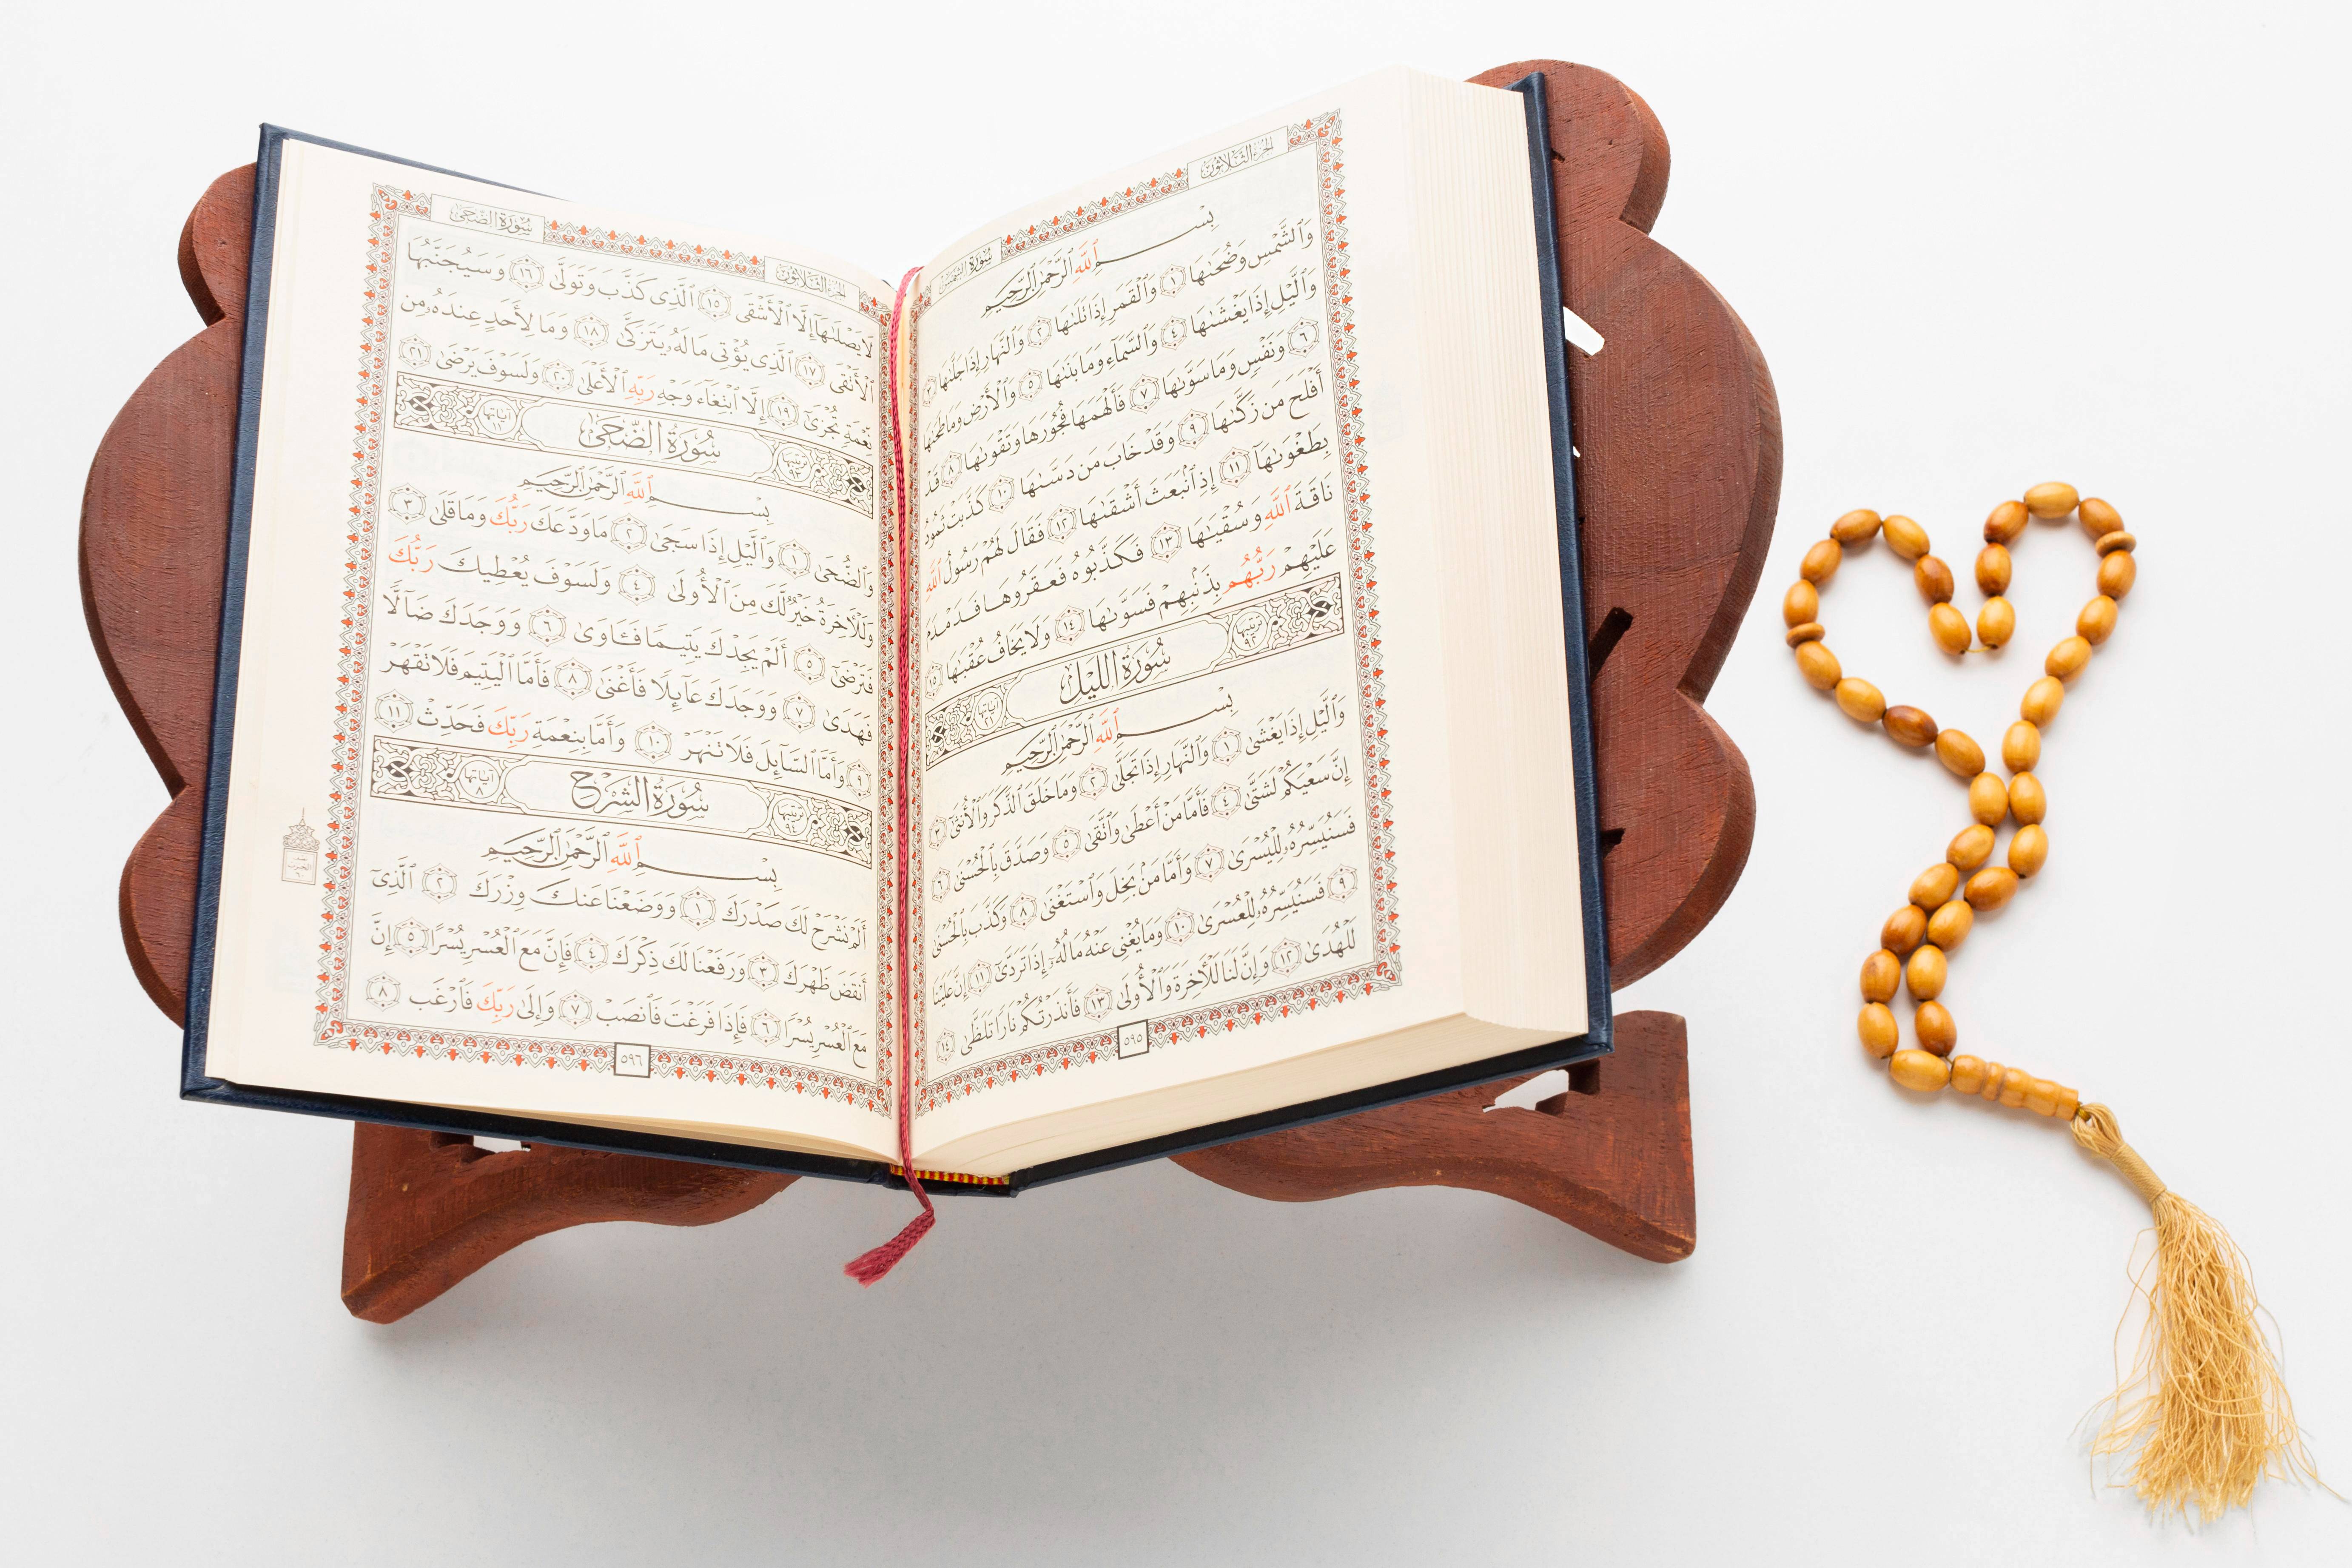 الجزء الثلاثون
سورة الشمس
بِسْمِ ٱللَّهِ ٱلرَّحْمَٰنِ ٱلرَّحِيمِ
وَٱلشَّمْسِ وَضُحَىٰهَا ١ وَٱلْقَمَرِ إِذَا تَلَىٰهَا ٢ وَٱلنَّهَارِ إِذَا جَلَّىٰهَا ٣
وَٱلَّيْلِ إِذَا يَغْشَىٰهَا ٤ وَٱلسَّمَآءِ وَمَا بَنَىٰهَا ٥ وَٱلْأَرْضِ وَمَا طَحَىٰهَا
٦ وَنَفْسٍ وَمَا سَوَّىٰهَا ٧ فَأَلْهَمَهَا فُجُورَهَا وَتَقْوَىٰهَا ٨ قَدْ
أَفْلَحَ مَن زَكَّىٰهَا ٩ وَقَدْ خَابَ مَن دَسَّىٰهَا ١٠ كَذَّبَتْ ثَمُودُ
بِطَغْوَىٰهَآ ١١ إِذِ ٱنۢبَعَثَ أَشْقَىٰهَا ١٢ فَقَالَ لَهُمْ رَسُولُ ٱللَّهِ
نَاقَةَ ٱللَّهِ وَسُقْيَٰهَا ١٣ فَكَذَّبُوهُ فَعَقَرُوهَا فَدَمْدَمَ
عَلَيْهِمْ رَبُّهُم بِذَنۢبِهِمْ فَسَوَّىٰهَا ١٤ وَلَا يَخَافُ عُقْبَٰهَا ١٥
ترتيبها ٩٢ سُورَةُ اللَّيْل آياتها ٢١
بِسْمِ ٱللَّهِ ٱلرَّحْمَٰنِ ٱلرَّحِيمِ
وَٱلَّيْلِ إِذَا يَغْشَىٰ ١ وَٱلنَّهَارِ إِذَا تَجَلَّىٰ ٢ وَمَا خَلَقَ ٱلذَّكَرَ وَٱلْأُنثَىٰٓ ٣
إِنَّ سَعْيَكُمْ لَشَتَّىٰ ٤ فَأَمَّا مَنْ أَعْطَىٰ وَٱتَّقَىٰ ٥ وَصَدَّقَ بِٱلْحُسْنَىٰ ٦
فَسَنُيَسِّرُهُۥ لِلْيُسْرَىٰ ٧ وَأَمَّا مَنۢ بَخِلَ وَٱسْتَغْنَىٰ ٨ وَكَذَّبَ بِٱلْحُسْنَىٰ
٩ فَسَنُيَسِّرُهُۥ لِلْعُسْرَىٰ ١٠ وَمَا يُغْنِى عَنْهُ مَالُهُۥٓ إِذَا تَرَدَّىٰٓ ١١ إِنَّ عَلَيْنَا
لَلْهُدَىٰ ١٢ وَإِنَّ لَنَا لَلْءَاخِرَةَ وَٱلْأُولَىٰ ١٣ فَأَنذَرْتُكُمْ نَارًا تَلَظَّىٰ ١٤
٥٩٥
سورة الضحى
الجزء الثلاثون
لَا يَصْلَىٰهَآ إِلَّا ٱلْأَشْقَى ١٥ ٱلَّذِى كَذَّبَ وَتَوَلَّىٰ ١٦ وَسَيُجَنَّبُهَا
ٱلْأَتْقَى ١٧ ٱلَّذِى يُؤْتِى مَالَهُۥ يَتَزَكَّىٰ ١٨ وَمَا لِأَحَدٍ عِندَهُۥ مِن
نِّعْمَةٍ تُجْزَىٰٓ ١٩ إِلَّا ٱبْتِغَآءَ وَجْهِ رَبِّهِ ٱلْأَعْلَىٰ ٢٠ وَلَسَوْفَ يَرْضَىٰ ٢١
ترتيبها ٩٣ سُورَةُ الضُّحَى آياتها ١١
بِسْمِ ٱللَّهِ ٱلرَّحْمَٰنِ ٱلرَّحِيمِ
وَٱلضُّحَىٰ ١ وَٱلَّيْلِ إِذَا سَجَىٰ ٢ مَا وَدَّعَكَ رَبُّكَ وَمَا قَلَىٰ ٣
وَلَلْءَاخِرَةُ خَيْرٌ لَّكَ مِنَ ٱلْأُولَىٰ ٤ وَلَسَوْفَ يُعْطِيكَ رَبُّكَ
فَتَرْضَىٰٓ ٥ أَلَمْ يَجِدْكَ يَتِيمًا فَـَٔاوَىٰ ٦ وَوَجَدَكَ ضَآلًّا
فَهَدَىٰ ٧ وَوَجَدَكَ عَآئِلًا فَأَغْنَىٰ ٨ فَأَمَّا ٱلْيَتِيمَ فَلَا تَقْهَرْ
٩ وَأَمَّا ٱلسَّآئِلَ فَلَا تَنْهَرْ ١٠ وَأَمَّا بِنِعْمَةِ رَبِّكَ فَحَدِّثْ ١١
ترتيبها ٩٤ سُورَةُ الشَّرْح آياتها ٨
بِسْمِ ٱللَّهِ ٱلرَّحْمَٰنِ ٱلرَّحِيمِ
أَلَمْ نَشْرَحْ لَكَ صَدْرَكَ ١ وَوَضَعْنَا عَنكَ وِزْرَكَ ٢ ٱلَّذِىٓ
أَنقَضَ ظَهْرَكَ ٣ وَرَفَعْنَا لَكَ ذِكْرَكَ ٤ فَإِنَّ مَعَ ٱلْعُسْرِ يُسْرًا ٥ إِنَّ
مَعَ ٱلْعُسْرِ يُسْرًا ٦ فَإِذَا فَرَغْتَ فَٱنصَبْ ٧ وَإِلَىٰ رَبِّكَ فَٱرْغَب ٨
٥٩٦